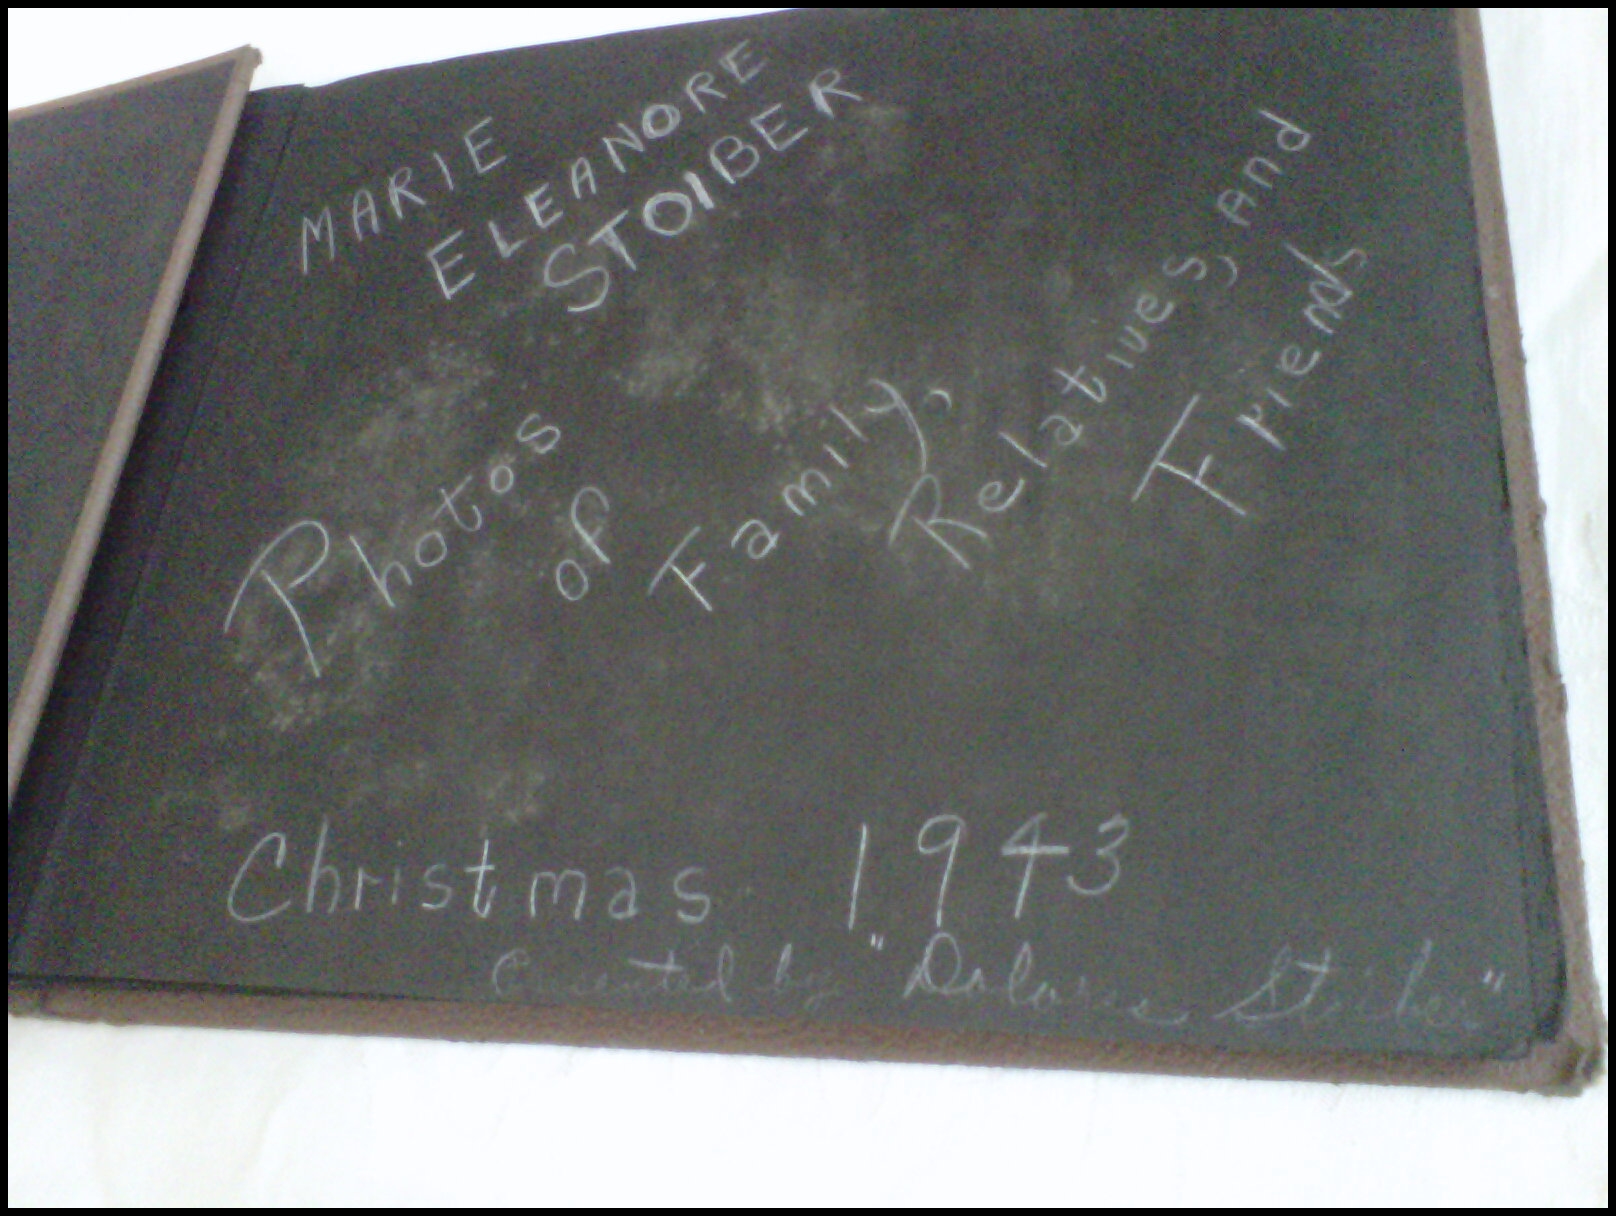 MARIE
ELEANORE
STOIBER
Photos
of
Family,
Relatives, and
Friends
Christmas 1943
Presented by "Dolores Stoiber"